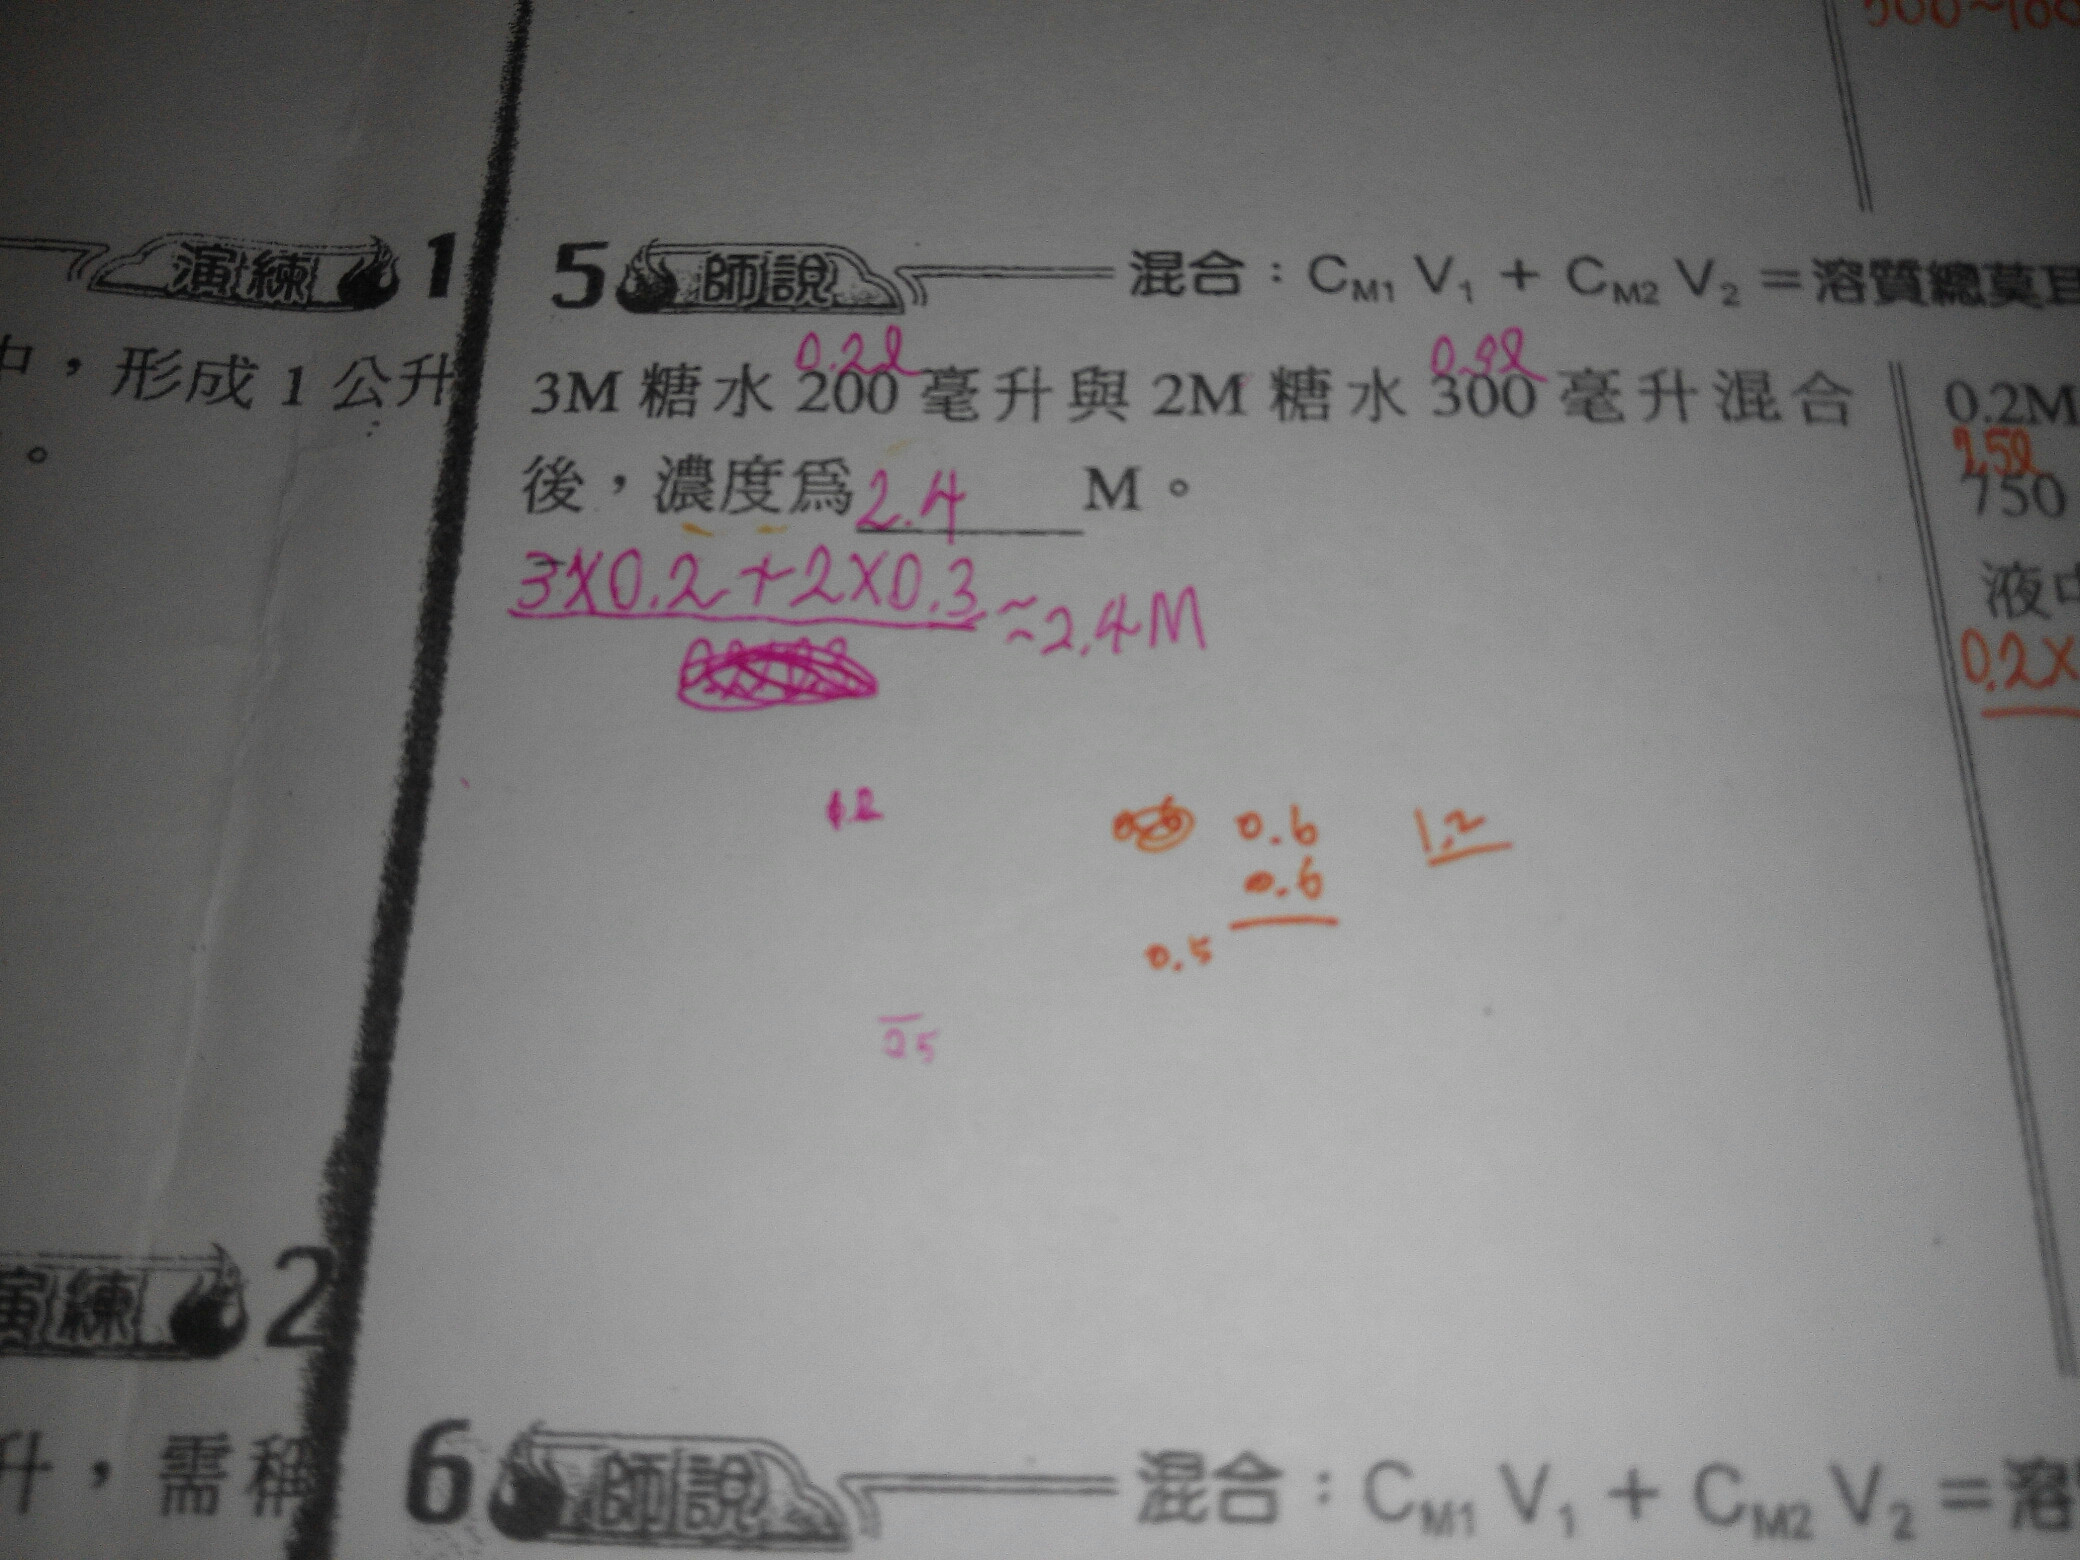 500~100
演練 1
中，形成 1 公升
。
5 師說 混合：CM1 V1 + CM2 V2 = 溶質總莫耳
0.2ℓ 0.3ℓ
3M 糖水 200 毫升與 2M 糖水 300 毫升混合
後，濃度為 2.4 M。
3×0.2+2×0.3 ≈2.4M
1.2
0.6 1.2
0.6
0.5
0.2M
750
液中
0.2×
演練 2
升，需稱
6 師說 混合：CM1 V1 + CM2 V2 = 溶